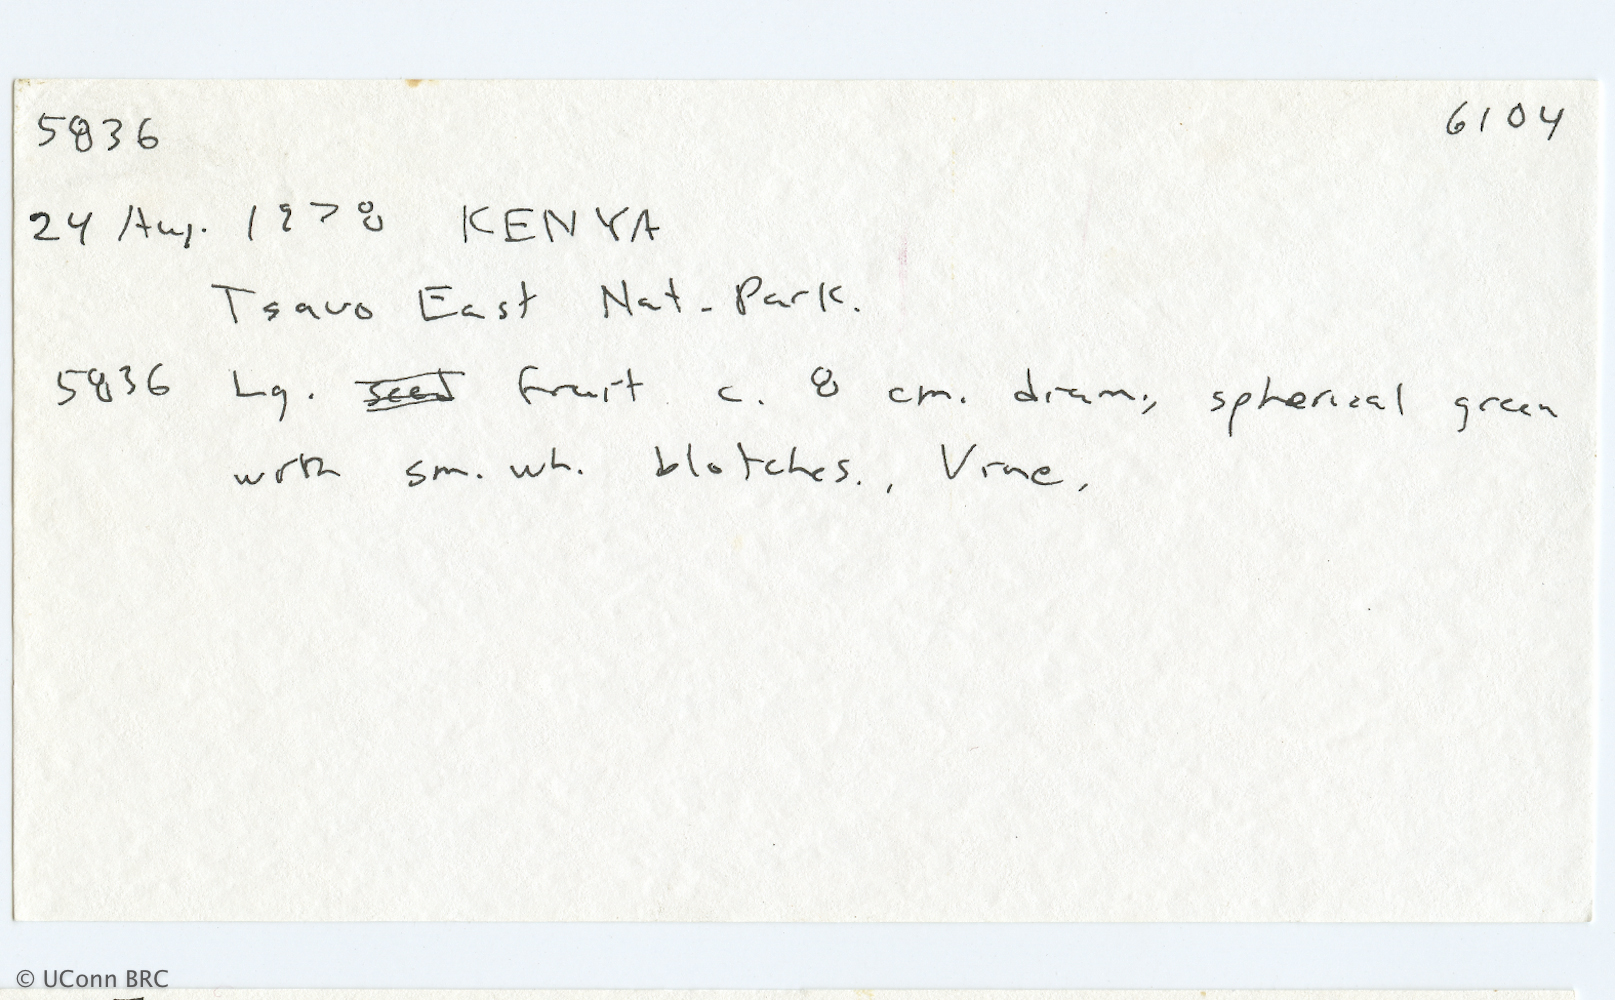 5836 6104
24 Aug. 1978 KENYA
Tsavo East Nat. Park.
5836 Lg. seed fruit c. 8 cm. diam., spherical green
with sm. wh. blotches., Vine.
© UConn BRC